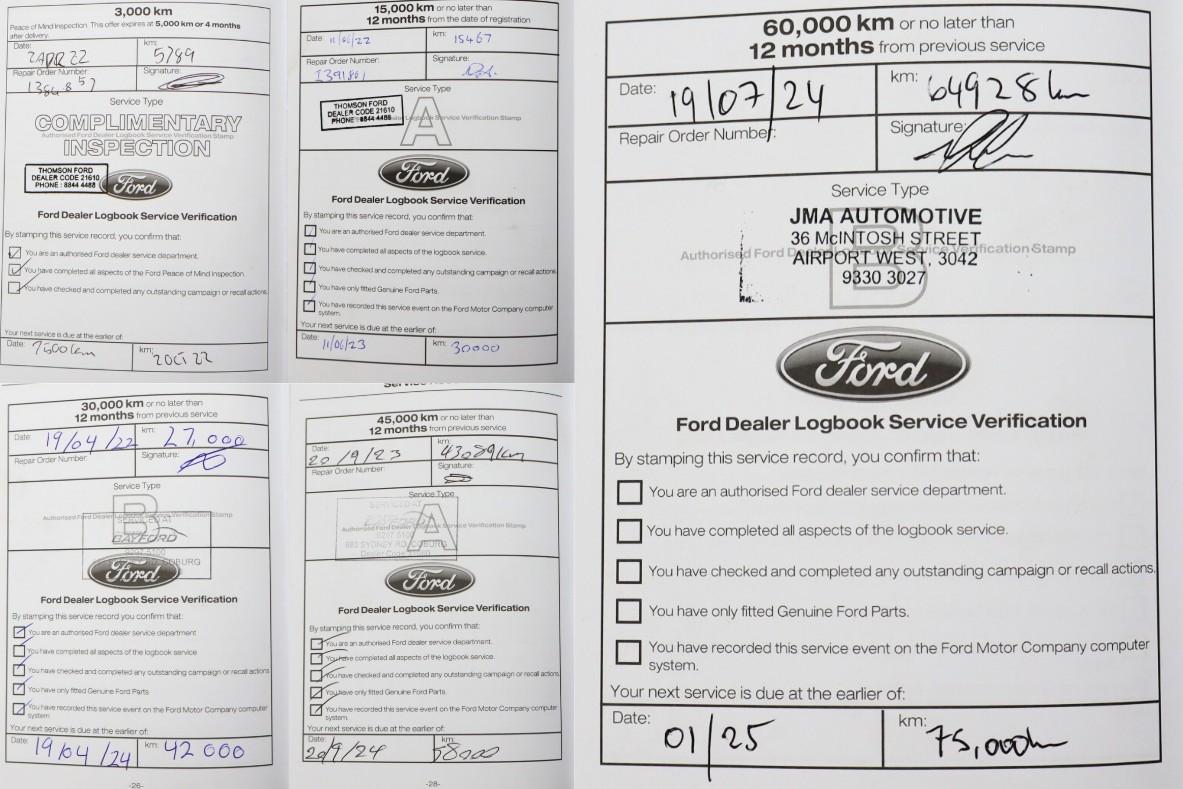 3,000 km
Peace of Mind Inspection. This offer expires at 5,000 km or 4 months
after delivery.
Date: 2 APR 22 km: 5789
Repair Order Number: Signature:
Service Type
COMPLIMENTARY
Authorised Ford Dealer Logbook Service Verification Stamp
INSPECTION
THOMSON FORD
DEALER CODE 21610
PHONE : 8844 4488
Ford
Ford Dealer Logbook Service Verification
By stamping this service record, you confirm that:
You are an authorised Ford dealer service department.
You have completed all aspects of the Ford Peace of Mind Inspection.
You have checked and completed any outstanding campaign or recall actions.
Your next service is due at the earlier of:
Date: 7500 km km: 2 OCT 22
15,000 km or no later than
12 months from the date of registration
Date: 11/06/22 km: 15467
Repair Order Number: I391861 Signature:
Service Type
THOMSON FORD
DEALER CODE 21610
PHONE : 8844 4488
Logbook Service Verification Stamp
A
Ford
Ford Dealer Logbook Service Verification
By stamping this service record, you confirm that:
You are an authorised Ford dealer service department.
You have completed all aspects of the logbook service.
You have checked and completed any outstanding campaign or recall actions.
You have only fitted Genuine Ford Parts.
You have recorded this service event on the Ford Motor Company computer
system.
Your next service is due at the earlier of:
Date: 11/06/23 km: 30000
30,000 km or no later than
12 months from previous service
Date: 19/04/22 km: 27,000
Repair Order Number: Signature:
Service Type
B
Authorised Ford Dealer Logbook Service Verification Stamp
SERVICED AT
BAYFORD
9297 5100
COBURG
Ford
Ford Dealer Logbook Service Verification
By stamping this service record you confirm that:
You are an authorised Ford dealer service department
You have completed all aspects of the logbook service
You have checked and completed any outstanding campaign or recall actions
You have only fitted Genuine Ford Parts
You have recorded this service event on the Ford Motor Company computer
system
Your next service is due at the earlier of:
Date: 19/04/24 km: 42 000
-26-
45,000 km or no later than
12 months from previous service
Date: 20/9/23 km: 43089km
Repair Order Number: Signature:
Service Type
SERVICED AT
A
BAYFORD
Authorised Ford Dealer Logbook Service Verification Stamp
9297 5100
SYDNEY RD, COBURG
Dealer Code
Ford
Ford Dealer Logbook Service Verification
By stamping this service record, you confirm that:
You are an authorised Ford dealer service department.
You have completed all aspects of the logbook service.
You have checked and completed any outstanding campaign or recall actions.
You have only fitted Genuine Ford Parts.
You have recorded this service event on the Ford Motor Company computer
system.
Your next service is due at the earlier of:
Date: 20/9/24 km: 58000
-28-
60,000 km or no later than
12 months from previous service
Date: 19/07/24 km: 64928km
Repair Order Number: Signature:
Service Type
JMA AUTOMOTIVE
36 McINTOSH STREET
B
Authorised Ford Dealer Logbook Service Verification Stamp
AIRPORT WEST, 3042
9330 3027
Ford
Ford Dealer Logbook Service Verification
By stamping this service record, you confirm that:
You are an authorised Ford dealer service department.
You have completed all aspects of the logbook service.
You have checked and completed any outstanding campaign or recall actions.
You have only fitted Genuine Ford Parts.
You have recorded this service event on the Ford Motor Company computer
system.
Your next service is due at the earlier of:
Date: 01/25 km: 75,000km